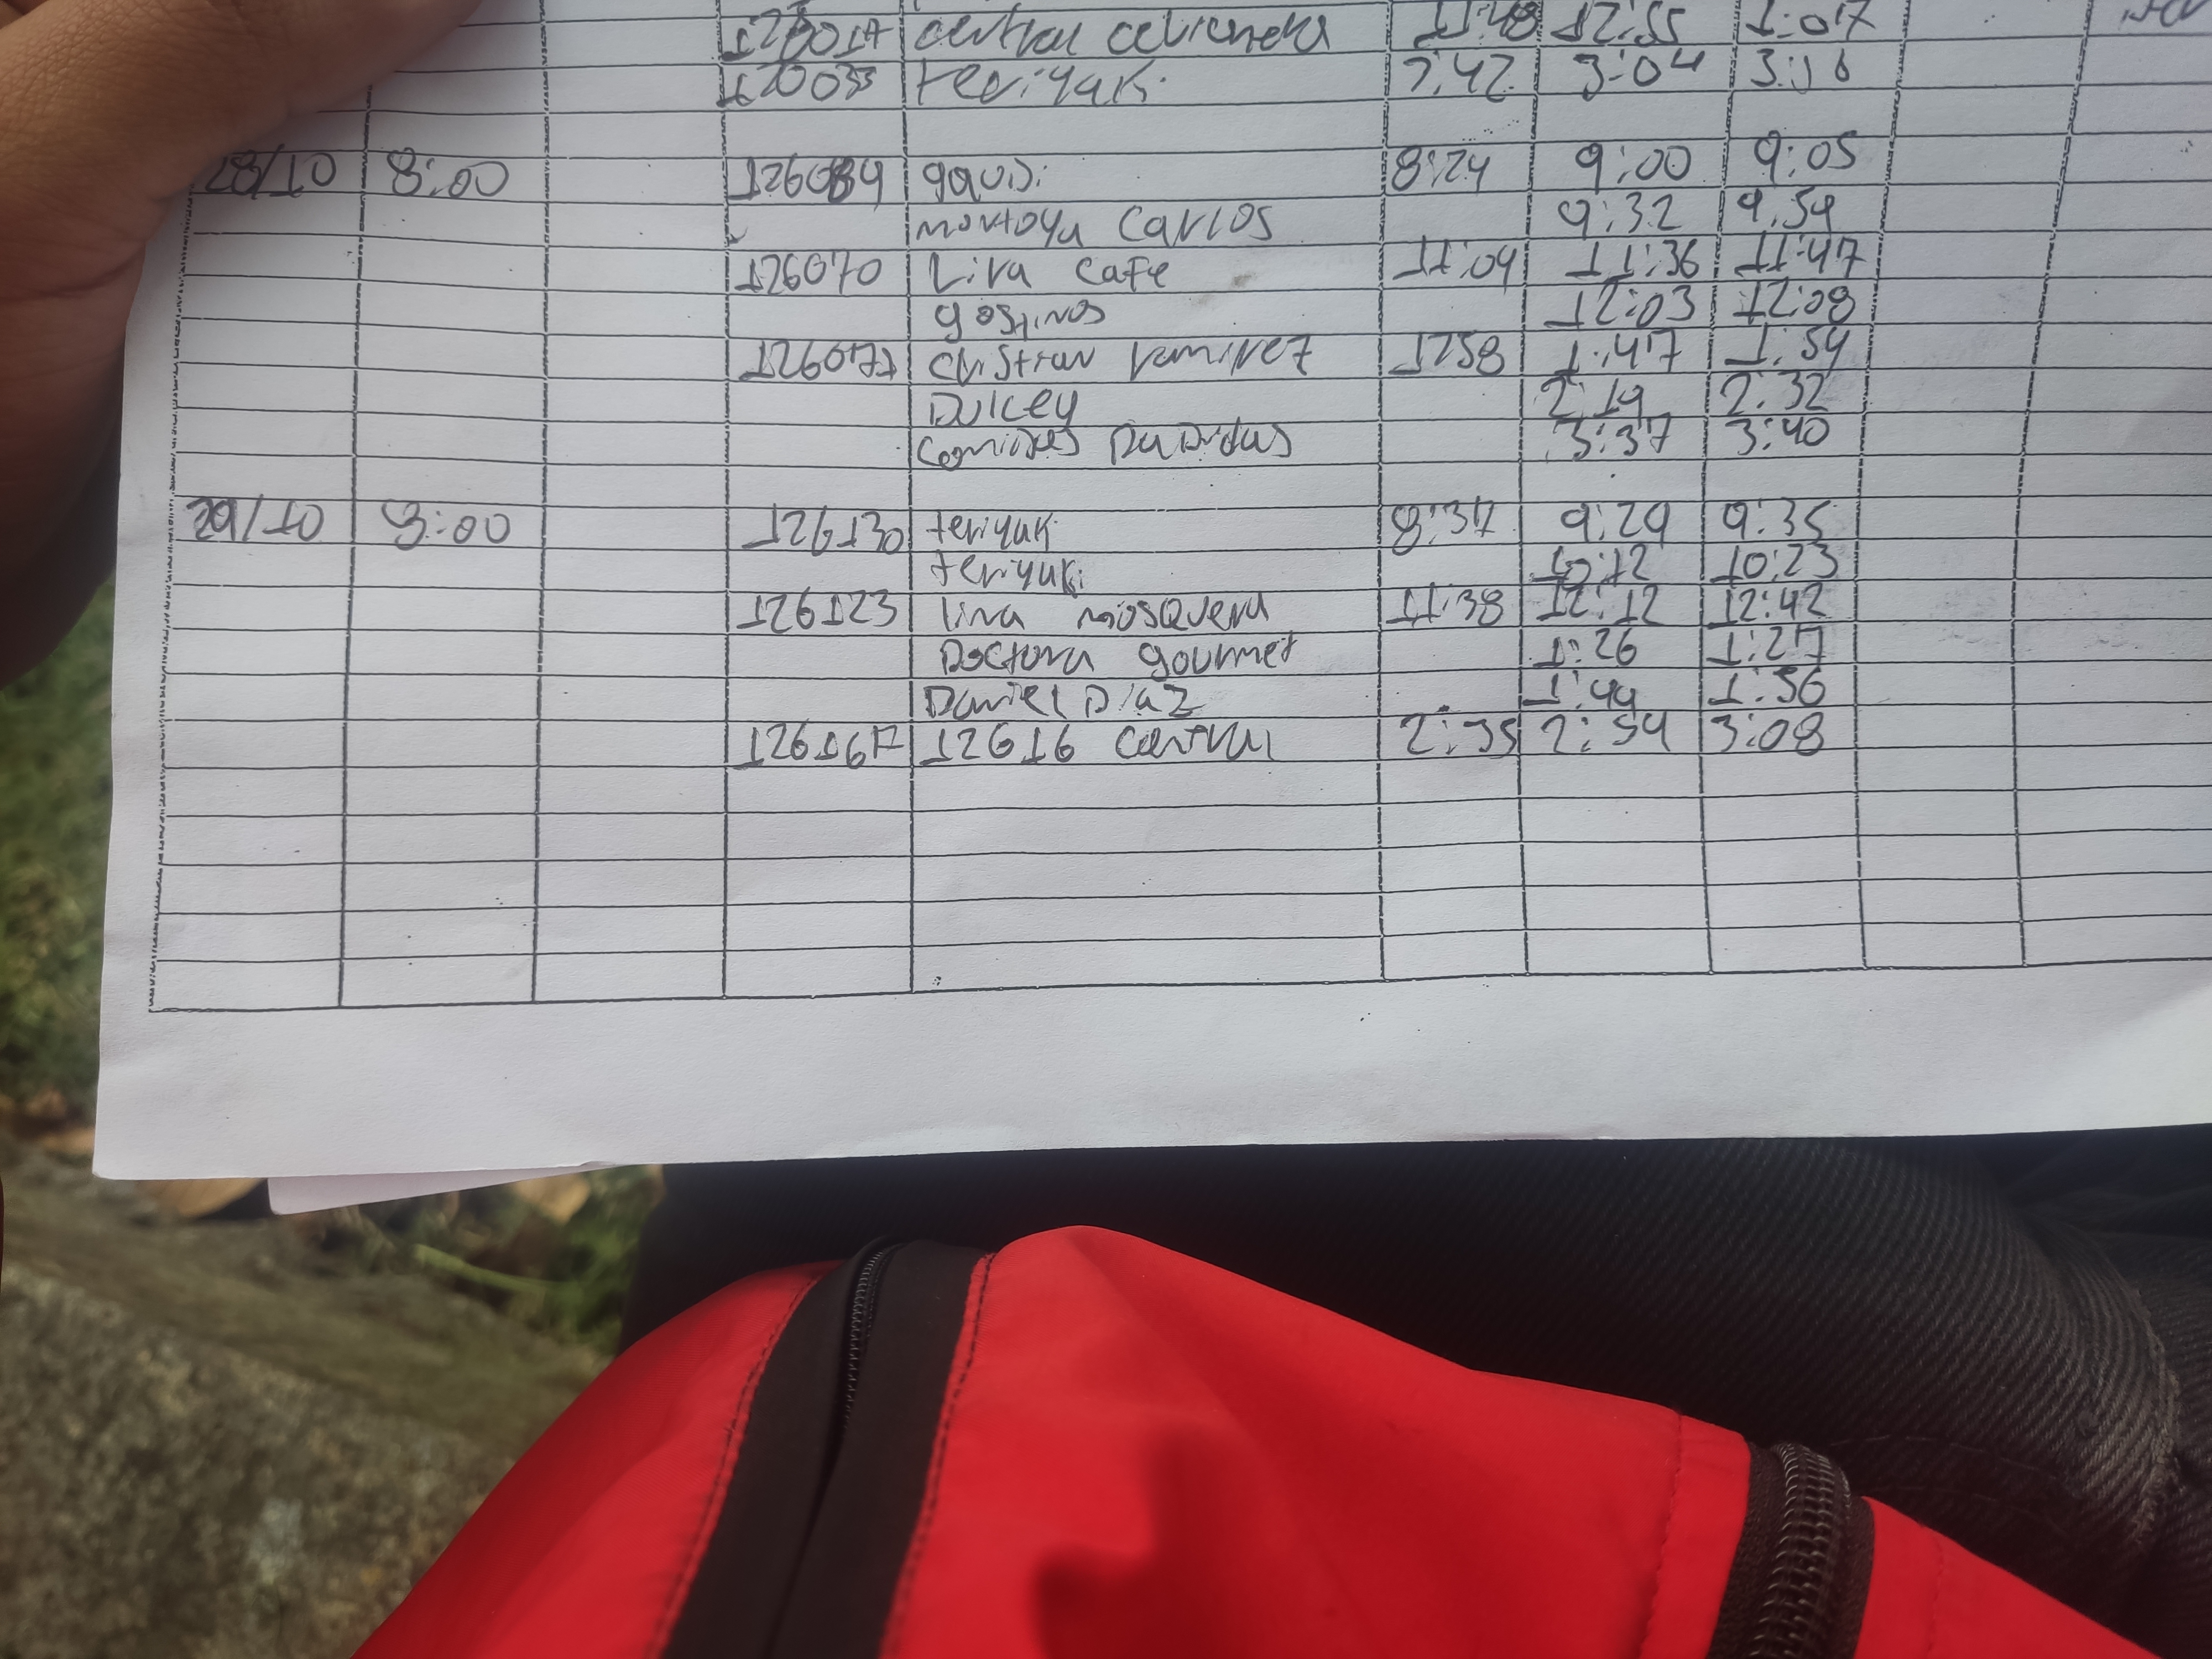 central cevicheria 11:48 12:55 1:07
teriyaki 3:04 3:16
28/10 8:00 126084 gaudi 8:24 9:00 9:05
montoya Carlos 9:32 9:54
126070 Lira cafe 11:04 11:36 11:47
12:03 12:08
126077 cristian ramirez 1258 1:47 1:54
Dulcey 2:19 2:32
3:37 3:40
29/10 8:00 126130 teriyaki 8:37 9:29 9:35
teriyaki 10:12 10:23
126123 lina mosquera 11:38 12:12 12:42
Doctora gourmet 1:26 1:27
Daniel Diaz 1:44 1:56
126167 12616 central 2:35 2:54 3:08